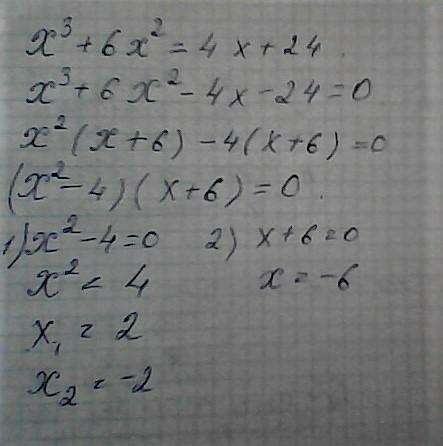 x³ + 6x² = 4x + 24.
x³ + 6x² - 4x - 24 = 0
x²(x + 6) - 4(x + 6) = 0
(x² - 4)(x + 6) = 0.
1) x² - 4 = 0 2) x + 6 = 0
x² = 4 x = -6
x₁ = 2
x₂ = -2